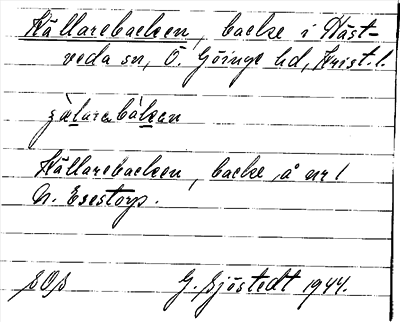 Källarebacken, backe i Häst-
veda sn, Ö. Göinge hd, Krist. l.
Källarebacken, backe å nr 1
N. Esestorp.
G. Sjöstedt 1944.